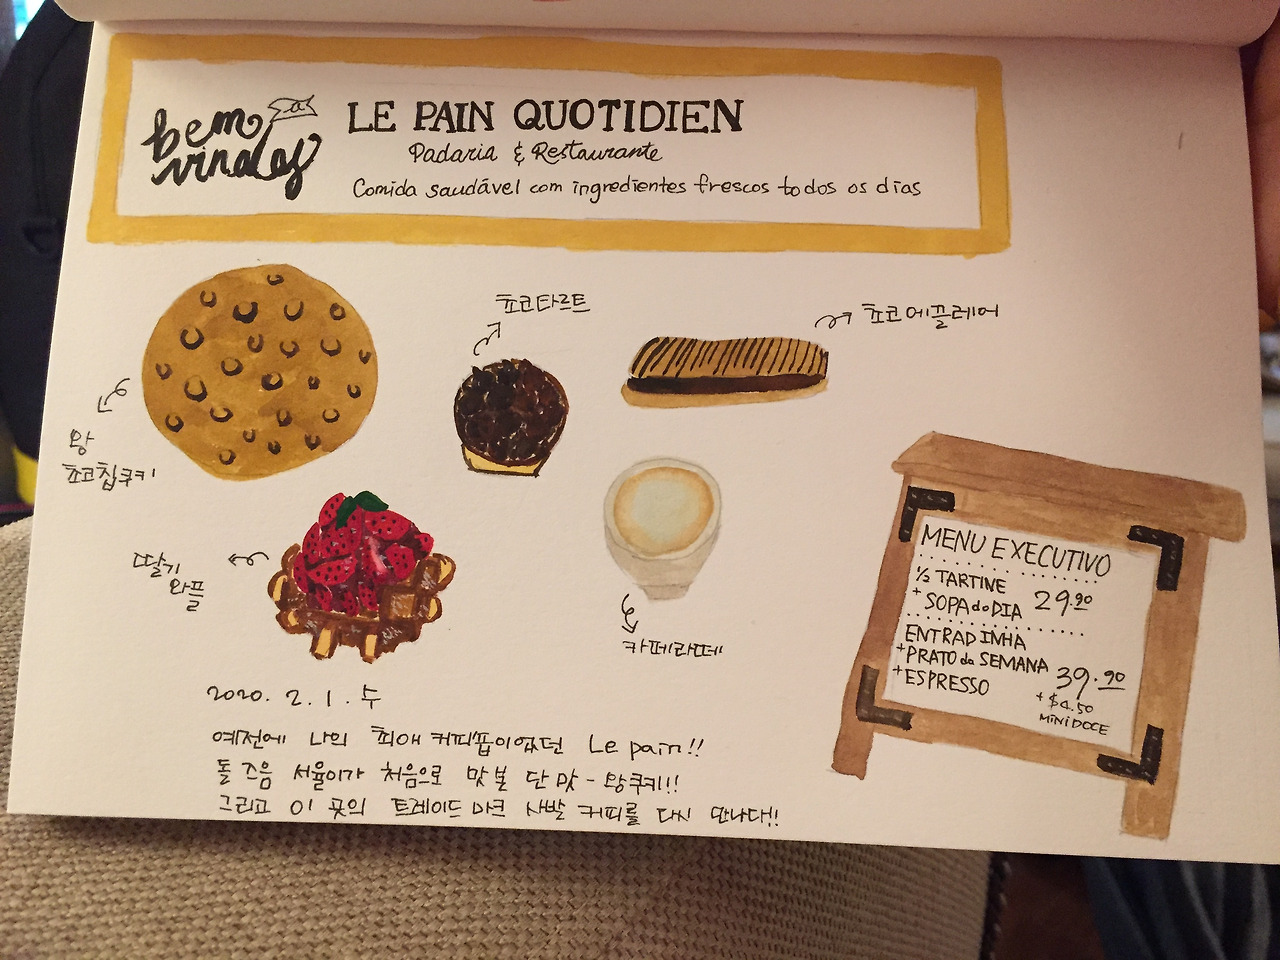 bem vindos
LE PAIN QUOTIDIEN
Padaria & Restaurante
Comida saudável com ingredientes frescos todos os dias
왕
쵸코칩쿠키
쵸코타르트
쵸코에끌레어
딸기
와플
카페라떼
MENU EXECUTIVO
½ TARTINE
+ SOPA do DIA 29.90
ENTRADINHA
+PRATO da SEMANA 39.90
+ESPRESSO
+ $4.50
MINIDOCE
2020. 2. 1. 수
예전에 나의 최애 커피숍이었던 Le pain!!
돌 즈음 서율이가 처음으로 맛 본 단 맛 - 왕쿠키!!
그리고 이 곳의 트레이드 마크 사발 커피를 다시 만나다!!